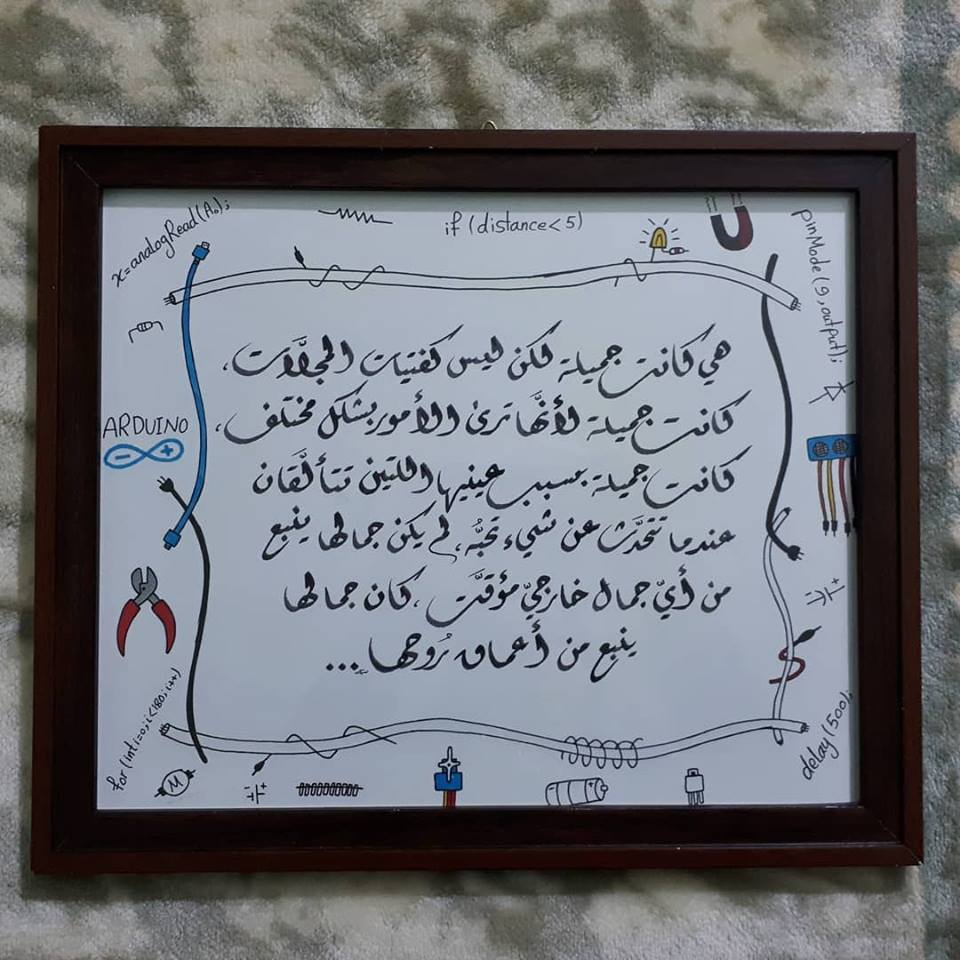 x=analogRead(A0);
if (distance<5)
pinMode(9,output);
ARDUINO
هي كانت جميلة لكن ليس كفتيات المجلَّات،
كانت جميلة لأنَّها ترى الأمور بشكل مختلف،
كانت جميلة بسبب عينيها اللتين تتألَّقان
عندما تتحَّدث عن شيء تحبُّه، لم يكن جمالها ينبع
من أيّ جمال خارجيّ مؤقَّت، كان جمالها
ينبع من أعماق رُوحِها...
for(int i=0;i<180;i++)
M
delay(500);